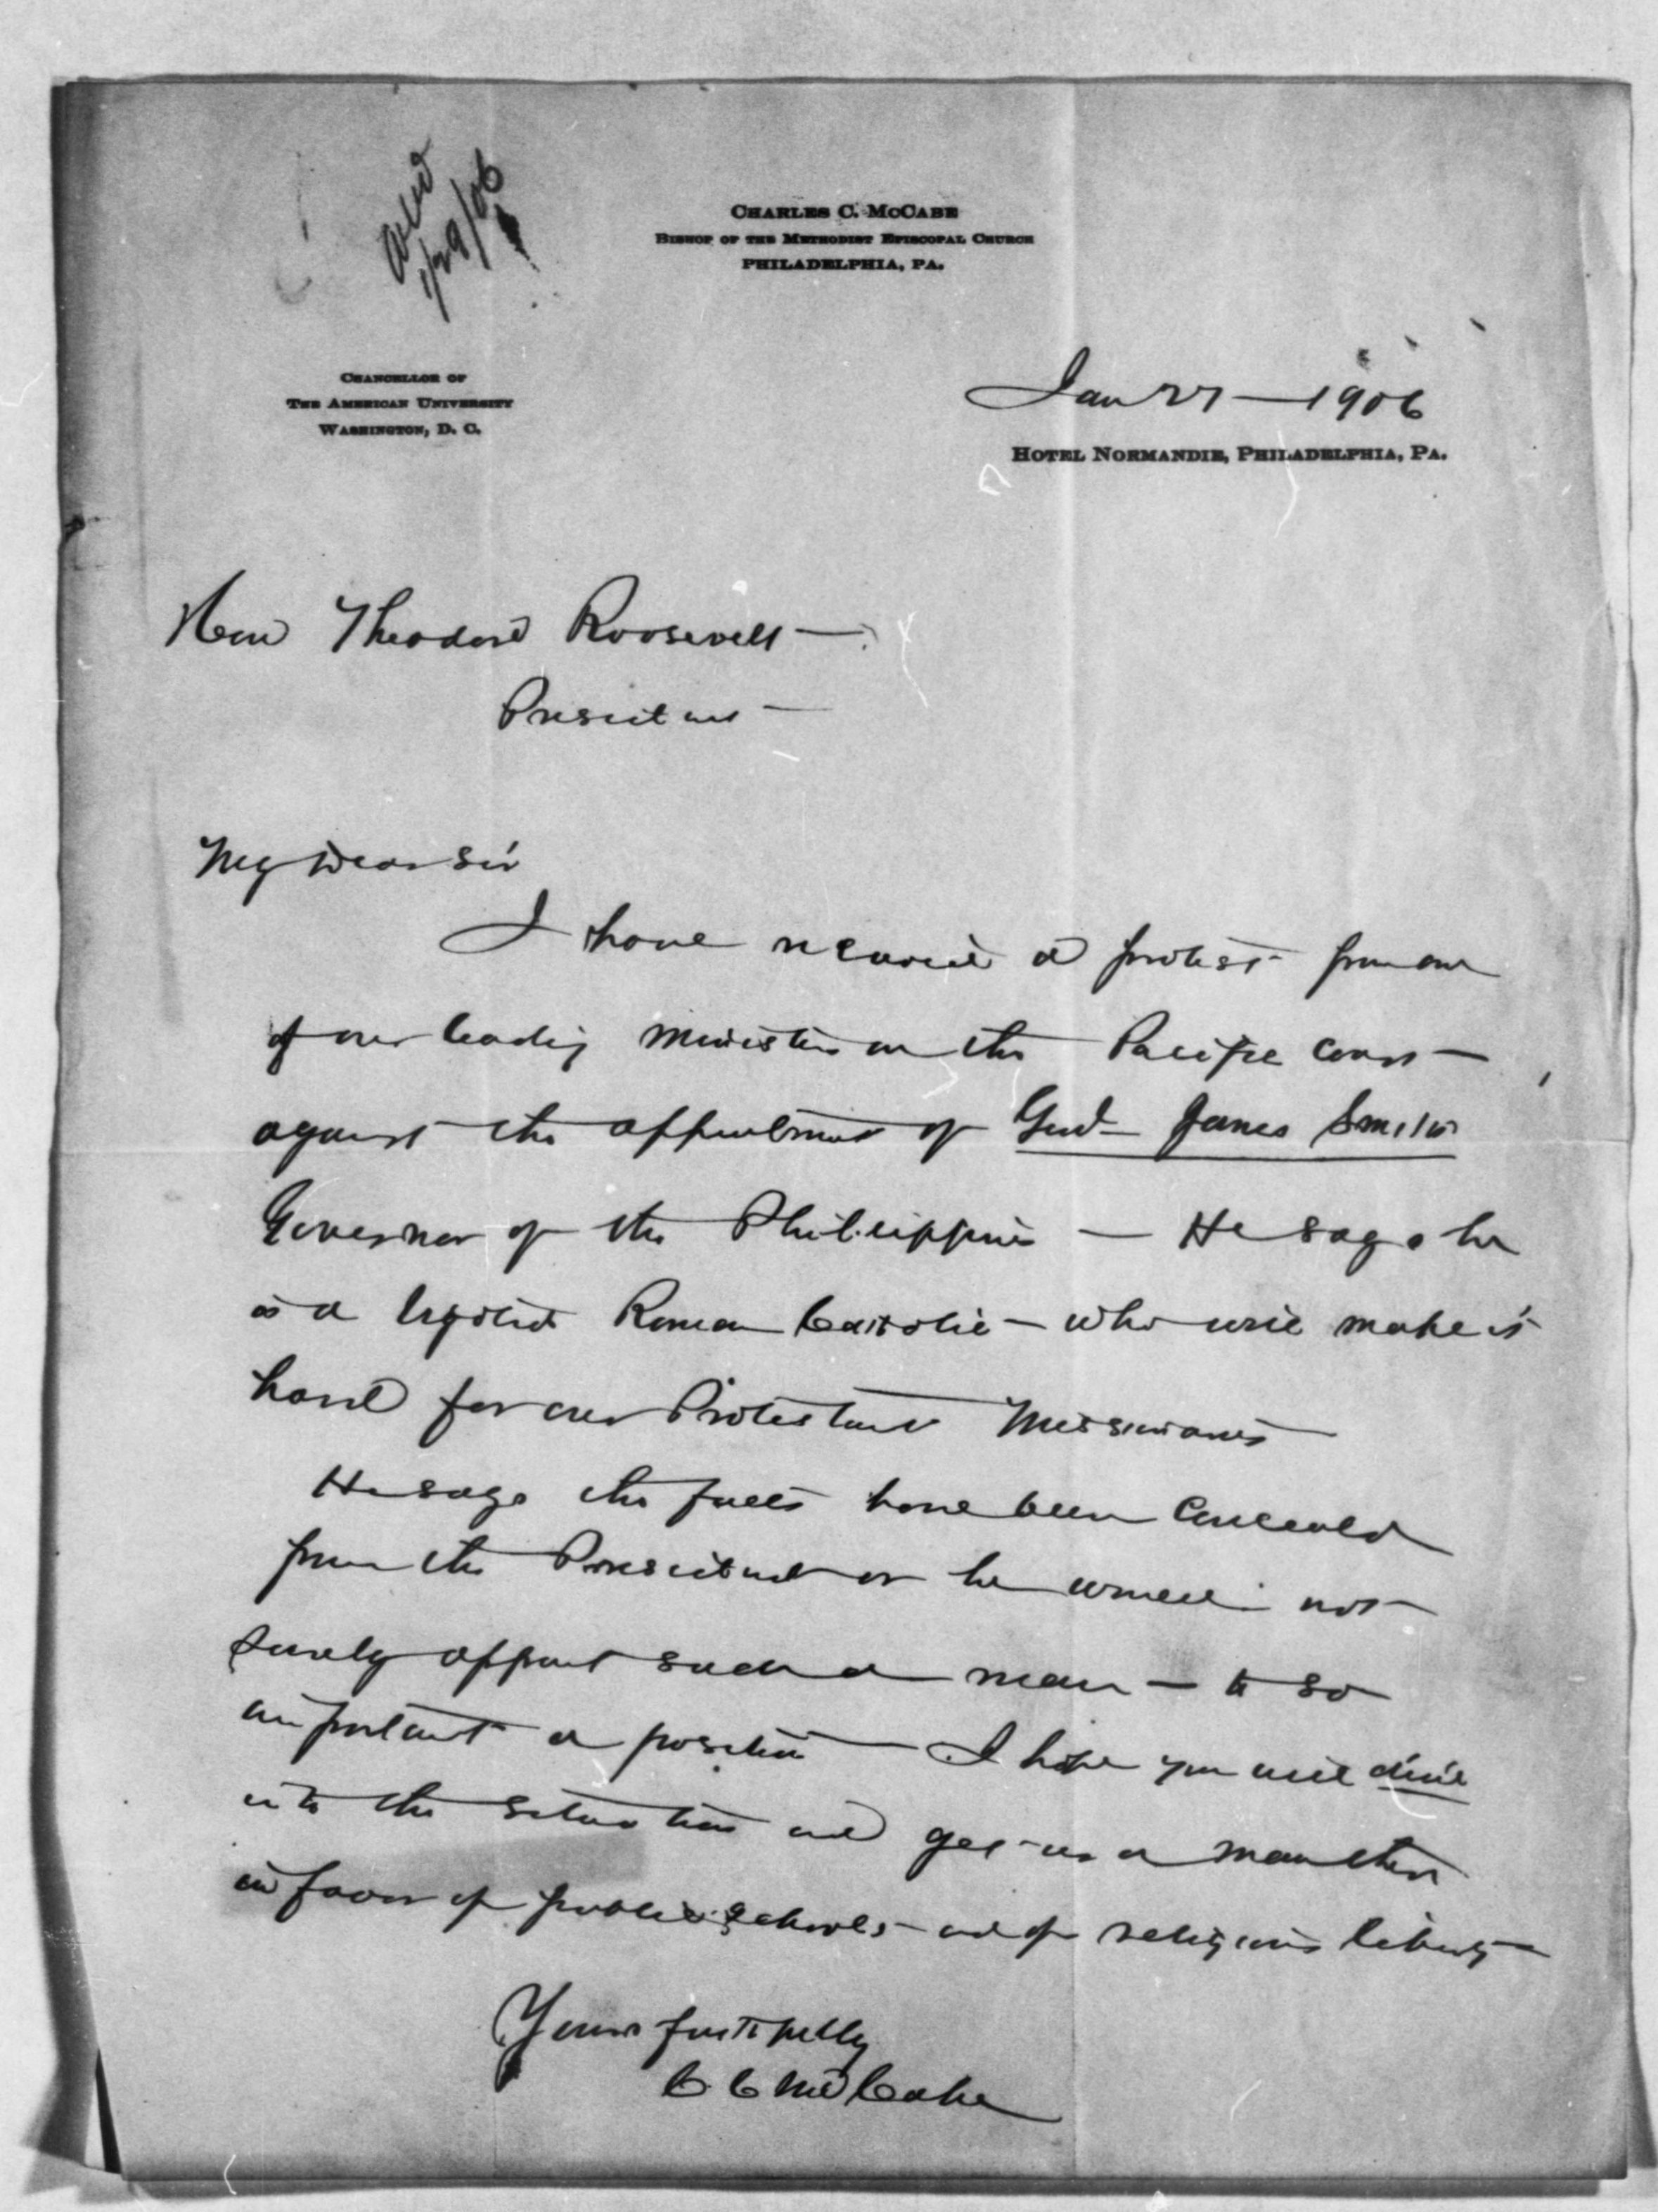 Ackd
1/29/06
CHARLES C. MCCABE
BISHOP OF THE METHODIST EPISCOPAL CHURCH
PHILADELPHIA, PA.
CHANCELLOR OF
THE AMERICAN UNIVERSITY
WASHINGTON, D. C.
Jan 27 — 1906
HOTEL NORMANDIE, PHILADELPHIA, PA.
Hon Theodore Roosevelt —
President —
My Dear Sir
I have received a protest from one
of our leading ministers on the Pacific Coast —
against the appointment of Genl James Smith
Governor of the Philippines — He says he
is a bigoted Roman Catholic — who will make it
hard for our Protestant Missionaries
He says the facts have been concealed
from the President or he would not
surely appoint such a man — to so
important a position — I hope you will dive
into the situation and get us a man there
in favor of public schools and of religious liberty —
Yours faithfully
C C McCabe